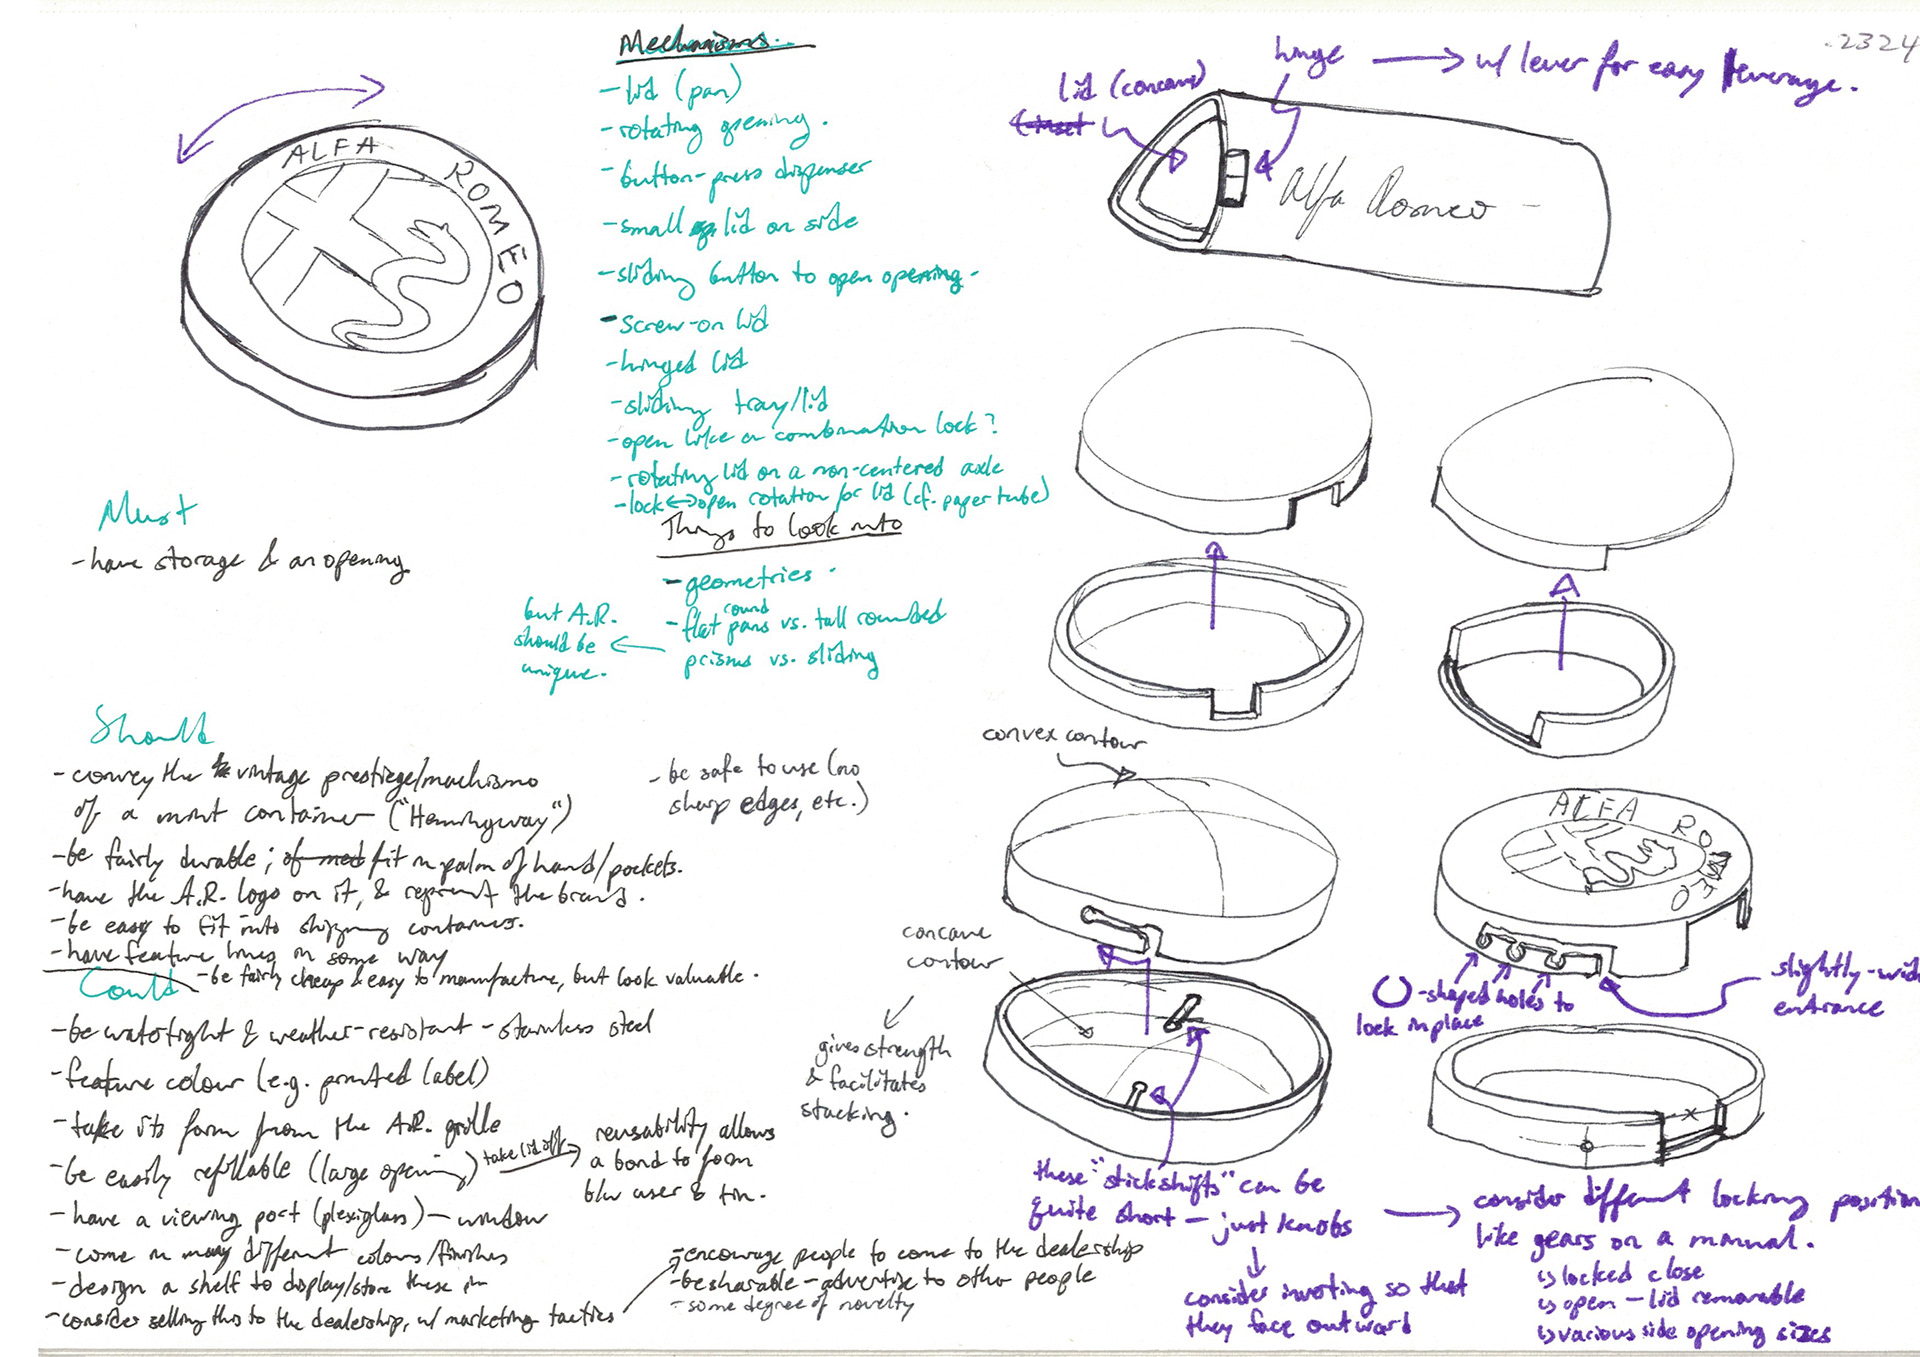 .2324
ALFA ROMEO
Mechanisms
- lid (pan)
- rotating opening.
- button-press dispenser
- small lid on side
- sliding button to open opening.
- screw-on lid
- hinged lid
- sliding tray/lid
- open like a combination lock?
- rotating lid on a non-centered axle
- lock <-> open rotation for lid (cf. paper tube)
Things to look into
- geometries
- flat round pans vs. tall rounded
prisms vs. sliding
but A.R.
should be
unique.
Must
- have storage & an opening
Should
- convey the vintage prestiege/machismo
of a mint container ("Hemingway")
- be fairly durable; fit in palm of hand/pockets.
- have the A.R. logo on it, & represent the brand.
- be easy to fit into shipping containers.
- have feature lines in some way
- be fairly cheap & easy to manufacture, but look valuable.
- be safe to use (no
sharp edges, etc.)
Could
- be watertight & weather-resistant - stainless steel
- feature colour (e.g. printed label)
- take its form from the A.R. grille
- be easily refillable (large opening)
take lid off
reusability allows
a bond to form
b/w user & tin.
- have a viewing port (plexiglass) - window
- come in many different colours/finishes
- design a shelf to display/store these in
- consider selling this to the dealership, w/ marketing tactics
- encourage people to come to the dealership
- be sharable - advertise to other people
- some degree of novelty
lid (concave)
hinge
w/ lever for easy leverage.
Alfa Romeo
convex contour
concave
contour
gives strength
& facilitates
stacking.
these "stickshifts" can be
quite short - just knobs
consider inverting so that
they face outward
ALFA ROMEO
-shaped holes to
lock in place
slightly-wid
entrance
consider different locking position
like gears on a manual.
locked close
open - lid removable
various side opening sizes